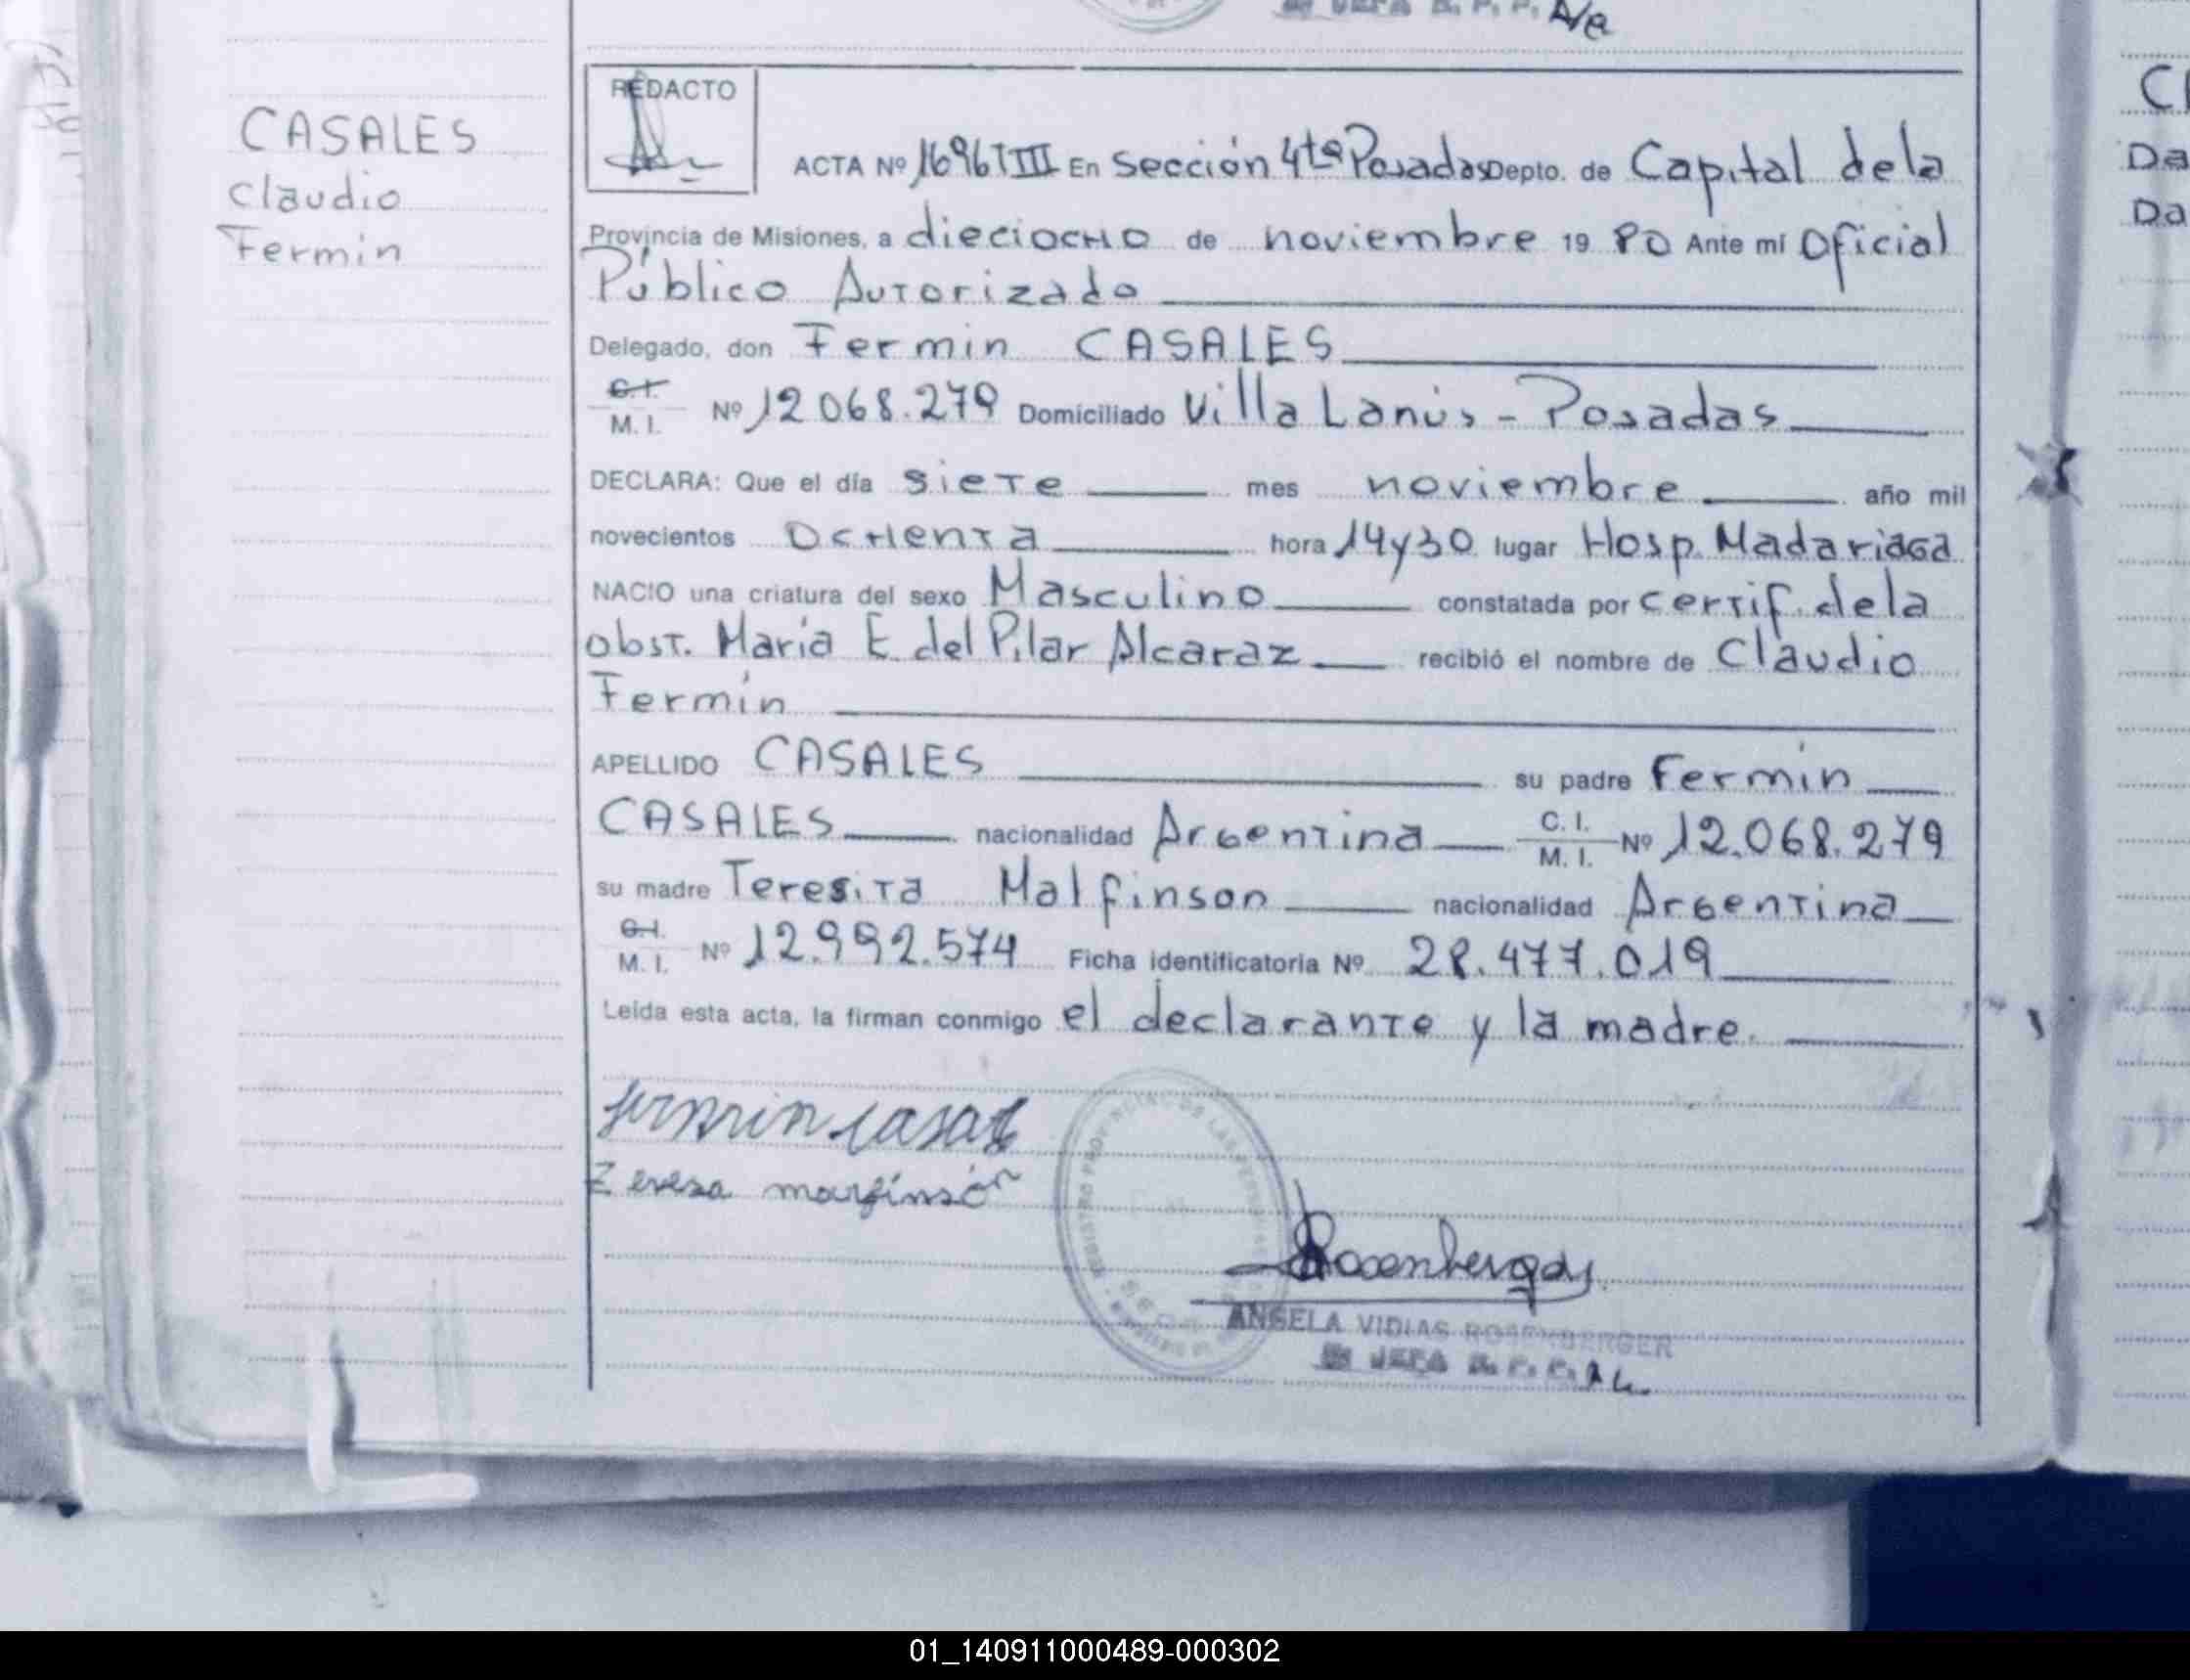 CASALES
Claudio
Fermín
REDACTO
ACTA Nº 1696 T III En Sección 4ta Posadas Depto. de Capital de la
Provincia de Misiones, a dieciocho de noviembre 19 80 Ante mí Oficial
Público Autorizado
Delegado, don Fermin CASALES
C. I.
M. I. Nº 12068.279 Domiciliado Villa Lanús - Posadas
DECLARA: Que el día siete mes noviembre año mil
novecientos ochenta hora 14 y 30 lugar Hosp. Madariaga
NACIO una criatura del sexo Masculino constatada por certif. de la
obst. María E. del Pilar Alcaraz recibió el nombre de Claudio
Fermín
APELLIDO CASALES su padre Fermín
CASALES nacionalidad Argentina C. I. M. I. Nº 12.068.279
su madre Teresita Malfinson nacionalidad Argentina
C. I.
M. I. Nº 12.992.574 Ficha identificatoria Nº 28.477.019
Leída esta acta, la firman conmigo el declarante y la madre.
fermin casales
Teresa marfinsón
Rosenberger
ANGELA VIDIAS ROSENBERGER
01_140911000489-000302